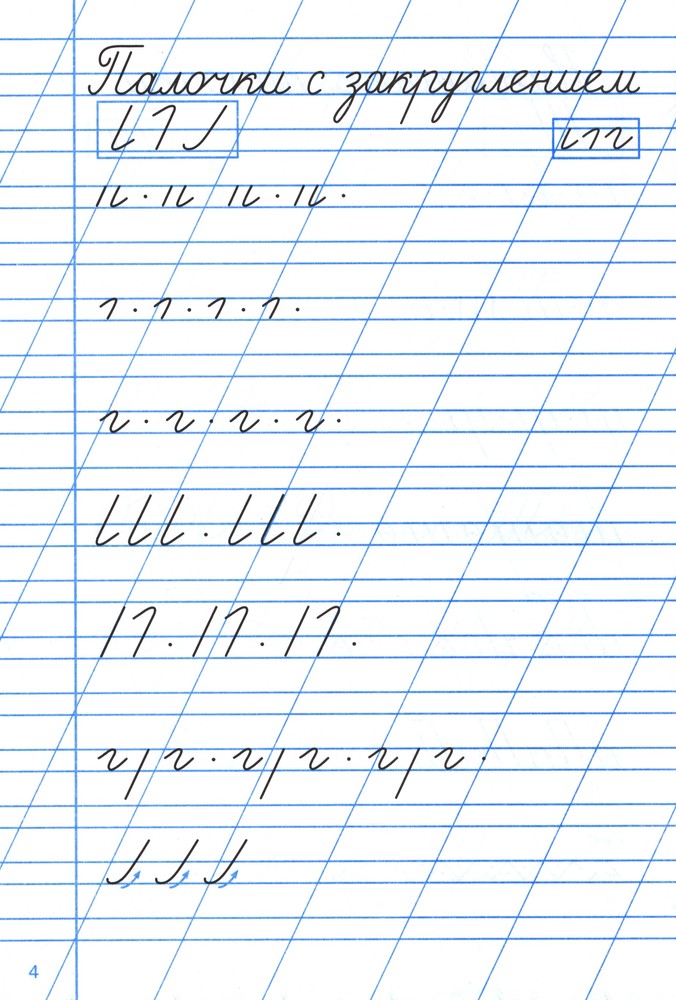 Палочки с закруглением
4